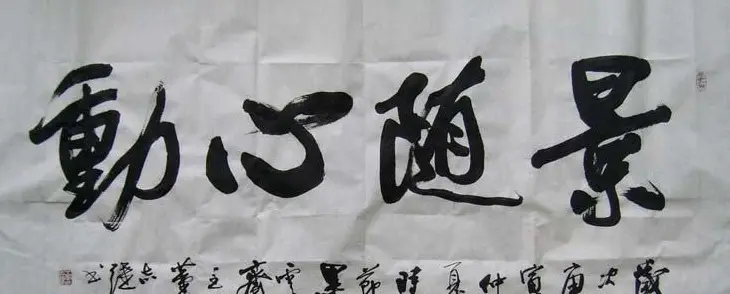 景随心動
歲次庚寅仲夏時節墨雲齋主董志强书